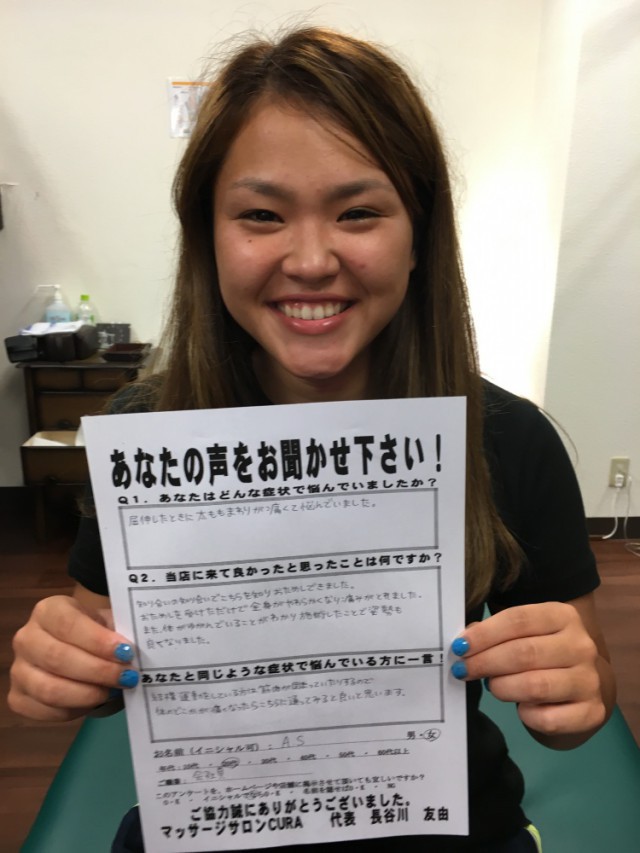 あなたの声をお聞かせ下さい！
Q1．あなたはどんな症状で悩んでいましたか？
屈伸したときに太ももまわりが痛くて悩んでいました。
Q2．当店に来て良かったと思ったことは何ですか？
知り合いの知り合いでこちらを知りおためしできました。
おためしを受けただけで全身がやわらかくなり痛みがとれました。
また、体がゆがんでいることがわかり施術したことで姿勢も
良くなりました。
あなたと同じような症状で悩んでいる方に一言！
結構運動をしている方は筋肉が固まっていたりするので
体のどこかが痛くなったらこちらに通ってみると良いと思います。
お名前（イニシャル可）： A.S 男・女
年代：10代・20代・30代・40代・50代・60代以上
ご職業： 会社員
このアンケートを、ホームページや店頭に掲示させて頂いても宜しいですか？
O・K ・ イニシャルでならO・K ・ 名前を隠せばO・K ・ NG
ご協力誠にありがとうございました。
マッサージサロンCURA 代表 長谷川 友由